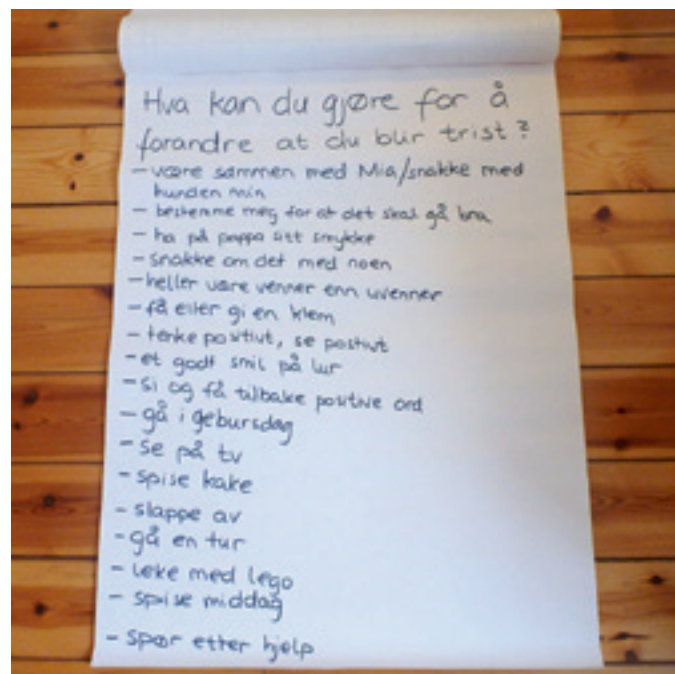 Hva kan du gjøre for å
forandre at du blir trist?
- være sammen med Mia/snakke med
hunden min
- bestemme meg for at det skal gå bra
- ha på pappa sitt smykke
- snakke om det med noen
- heller være venner enn uvenner
- få eller gi en klem
- tenke positivt, se positivt
- et godt smil på lur
- si og få tilbake positive ord
- gå i gebursdag
- se på tv
- spise kake
- slappe av
- gå en tur
- leke med lego
- spise middag
- spør etter hjelp